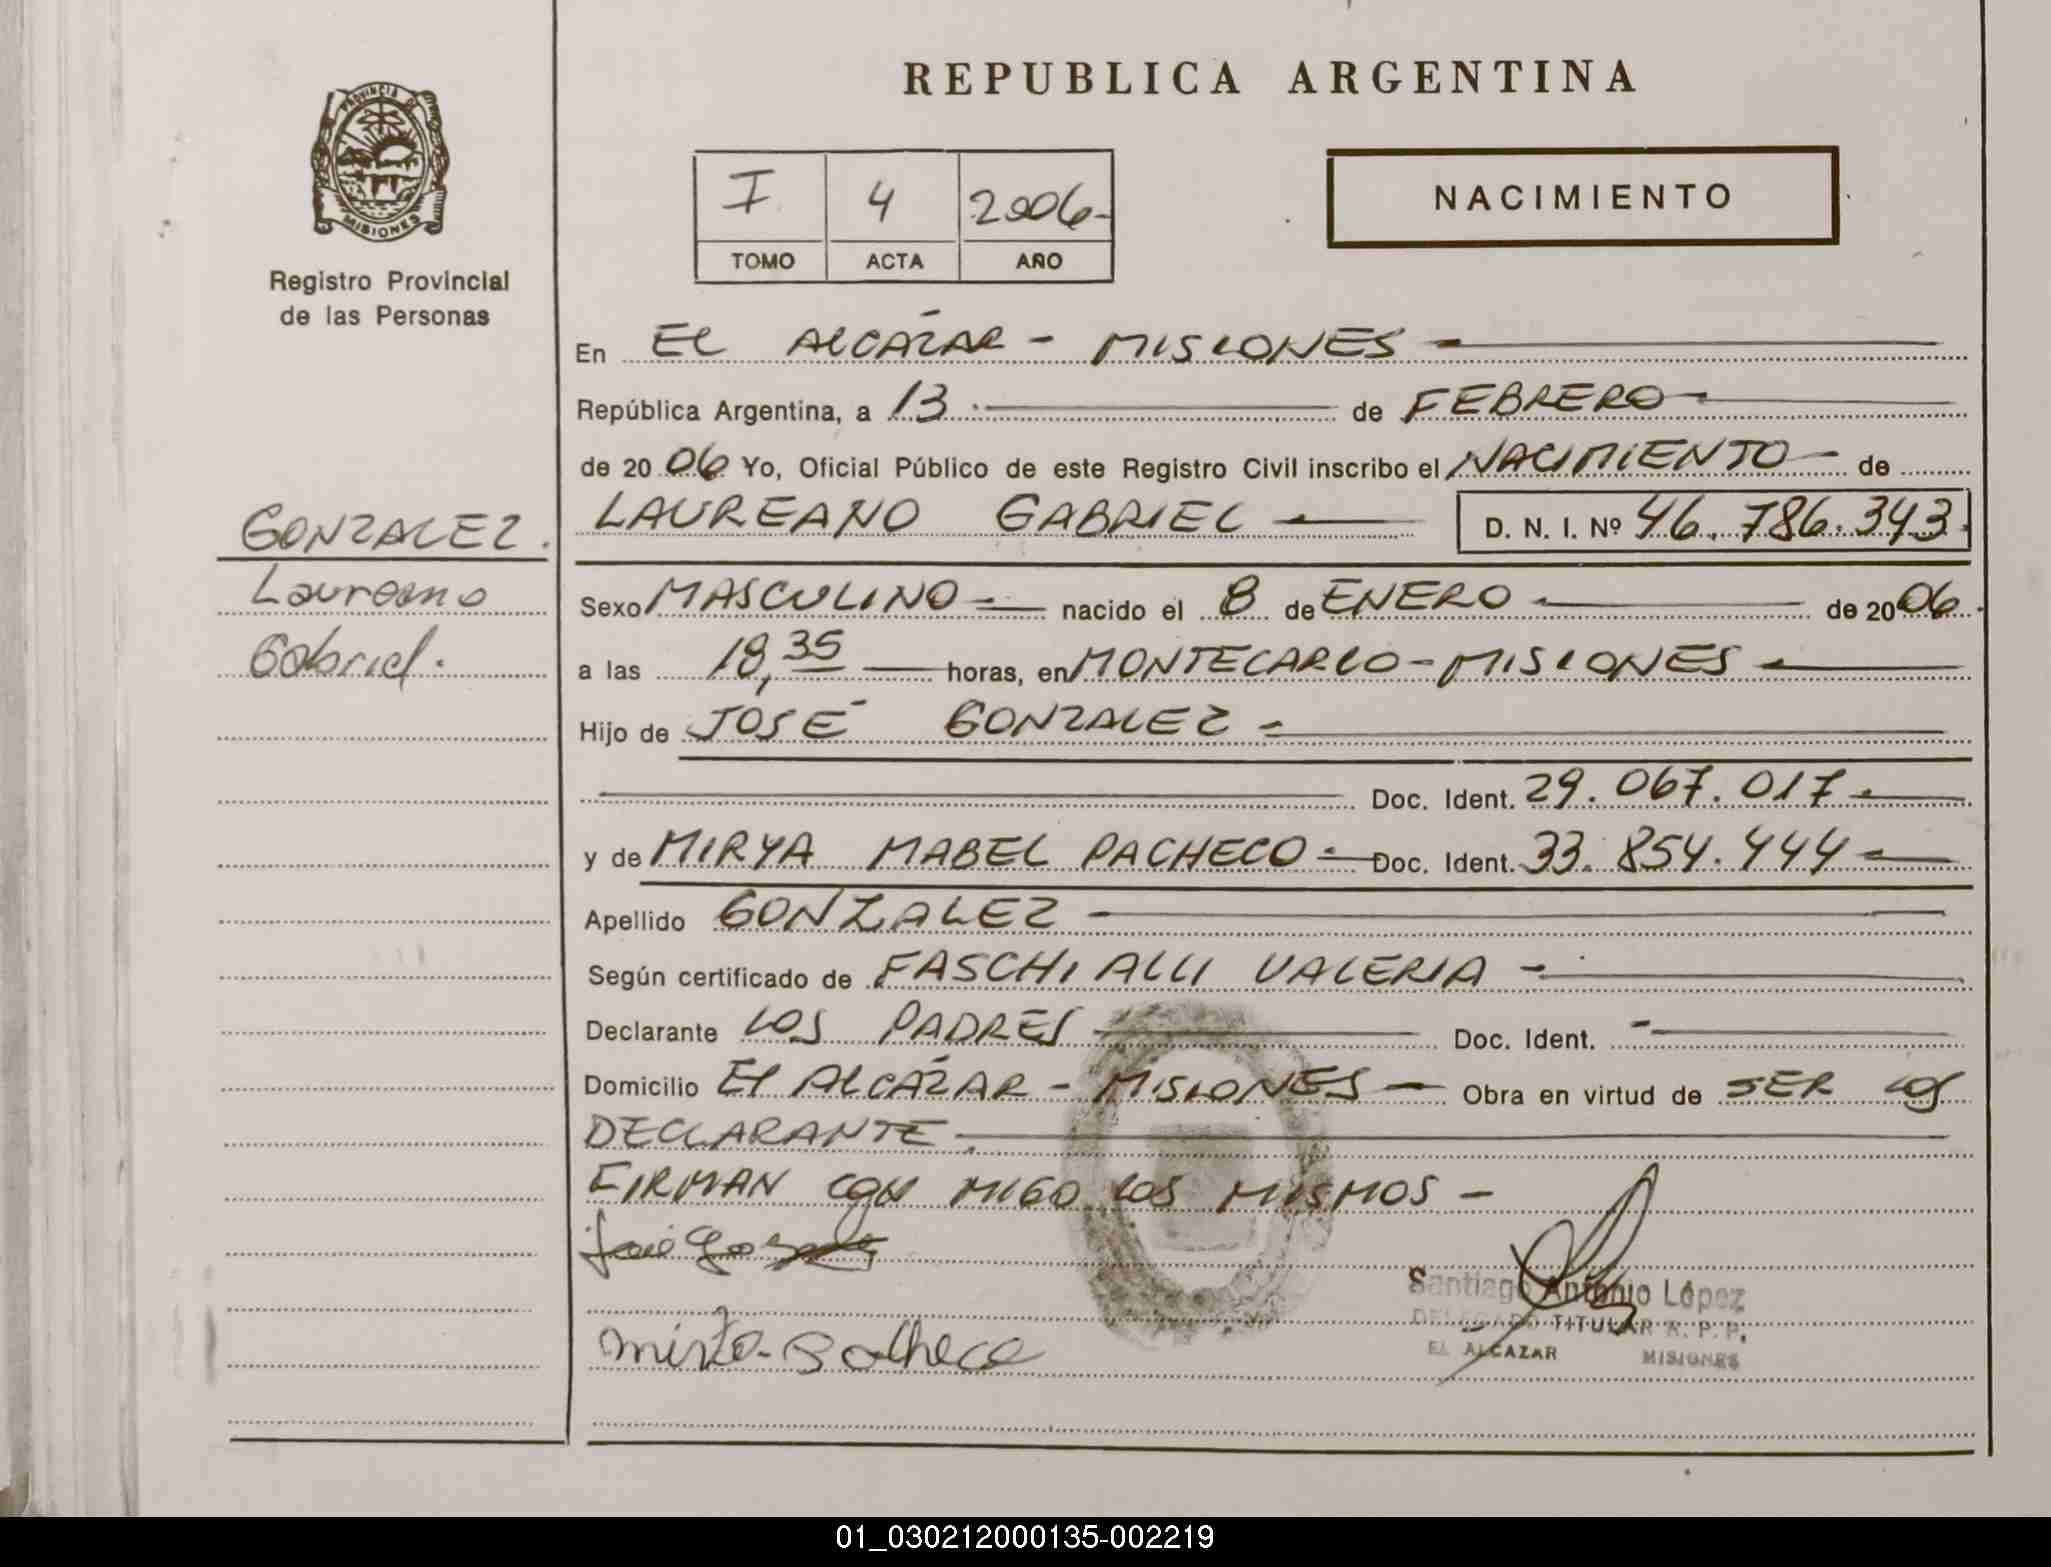 REPUBLICA ARGENTINA
PROVINCIA DE
MISIONES
Registro Provincial
de las Personas
I 4 2006-
TOMO ACTA AÑO
NACIMIENTO
En EL ALCÁZAR - MISIONES -
República Argentina, a 13 de FEBRERO -
de 20 06 Yo, Oficial Público de este Registro Civil inscribo el NACIMIENTO - de
GONZALEZ.
LAUREANO GABRIEL - D. N. I. Nº 46.786.343.
Laureano
Sexo MASCULINO - nacido el 8 de ENERO - de 20 06.
Gabriel.
a las 18,35 horas, en MONTECARLO - MISIONES -
Hijo de JOSÉ GONZALEZ -
Doc. Ident. 29.067.017.-
y de MIRYA MABEL PACHECO - Doc. Ident. 33.854.444 -
Apellido GONZALEZ -
Según certificado de FASCHIALLI VALERIA -
Declarante LOS PADRES Doc. Ident. -
Domicilio El ALCÁZAR - MISIONES - Obra en virtud de SER LOS
DECLARANTE.
FIRMAN CON MIGO LOS MISMOS -
José
Santiago Antonio López
DELEGADO TITULAR R. P. P.
EL ALCAZAR MISIONES
Pacheco
01_030212000135-002219